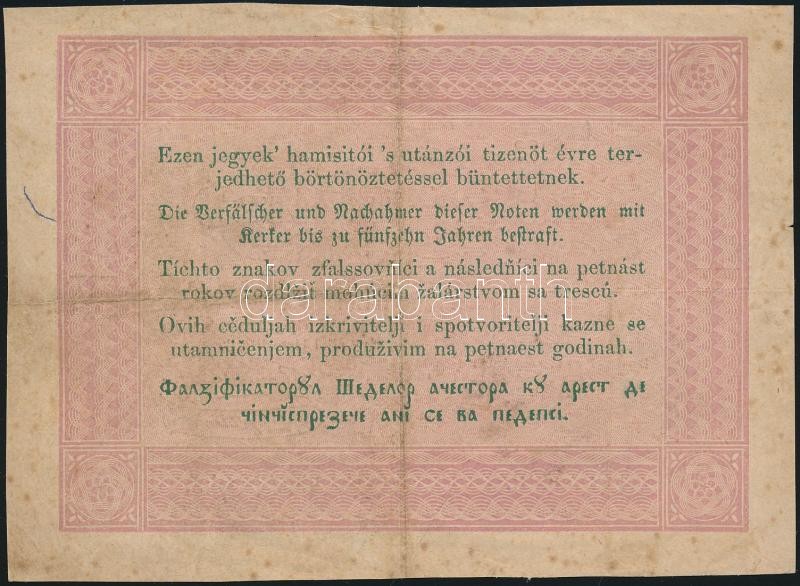 Ezen jegyek' hamisitói 's utánzói tizenöt évre ter-
jedhető börtönöztetéssel büntettetnek.
Die Verfälscher und Nachahmer dieser Noten werden mit
Kerker bis zu fünfzehn Jahren bestraft.
Tíchto znakov zfalssovňíci a následňíci na petnást
rokov rozdlžit mohúcim žalárstvom sa trescú.
darabanth
Ovih cěduljah izkrivitelji i spotvoritelji kazne se
utamničenjem, produživim na petnaest godinah.
Фалꙁіфікаторꙋл Шеделор ачестора кꙋ арест де
чінчіспрезече ані се ва педепсі.